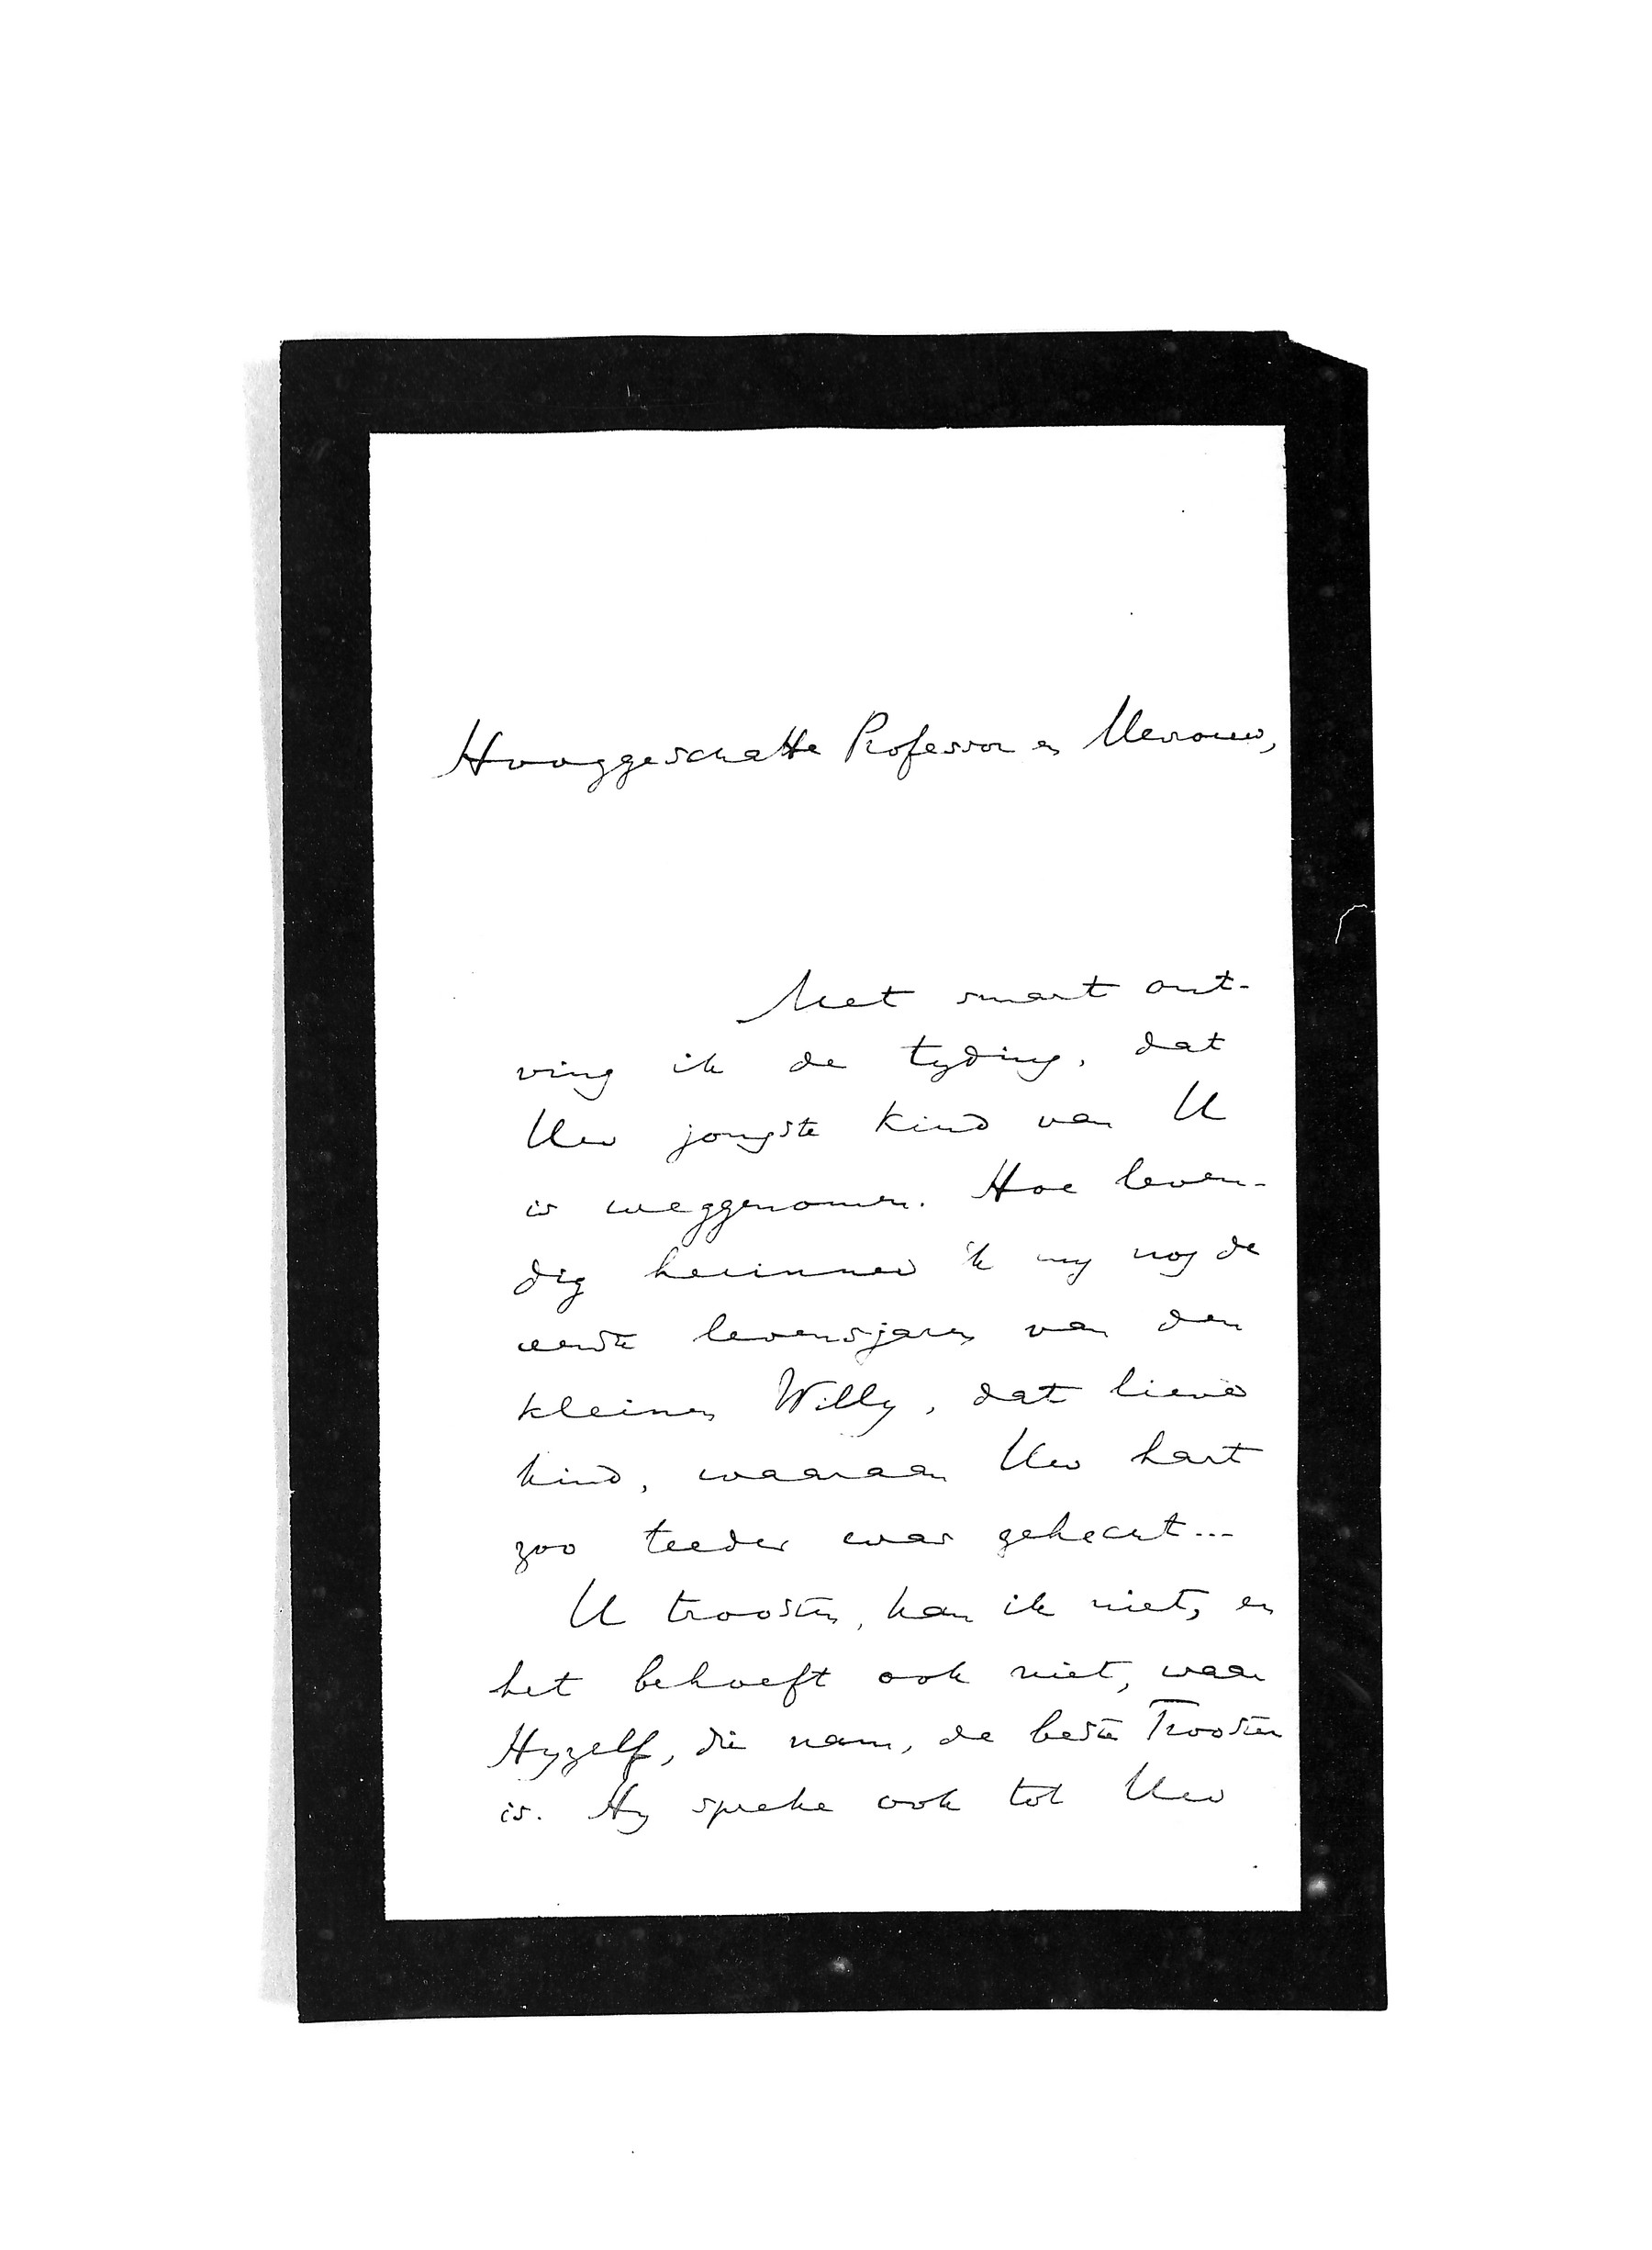 Hooggeschatte Professor en Mevrouw,
Met smart ont-
ving ik de tyding, dat
Uw jongste kind van U
is weggenomen. Hoe leven-
dig herinner ik my nog de
eerste levensjaren van den
kleinen Willy, dat lieve
kind, waaraan Uw hart
zoo teeder was gehecht...
U troosten, kan ik niet, en
het behoeft ook niet, waar
Hyzelf, die nam, de beste Trooster
is. Hy spreke ook tot Uw